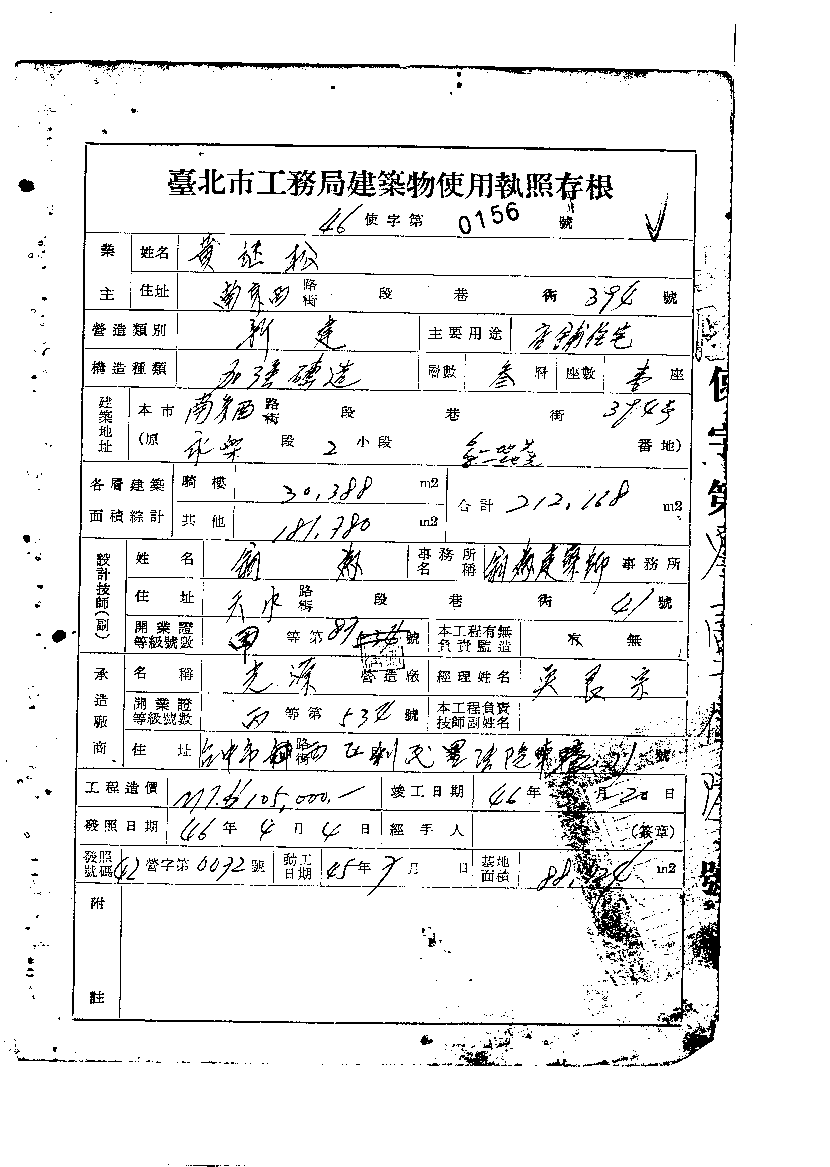 臺北市工務局建築物使用執照存根
46 使字第 0156 號
業主 姓名 黄 松
住址 南京西 路街 段 巷 街 394 號
營造類別 新建 主要用途 店舖住宅
構造種類 加强磚造 層數 叁 層 座數 壹 座
建築地址 本市 南京西 路街 段 巷 街 394号
(原 永樂 段 2 小段 番地)
各層建築面積綜計 騎樓 30.388 m2 合計 212.168 m2
其他 181.780 m2
設計技師(副) 姓名 事務所名稱 建築師 事務所
住址 天水 路街 段 巷 街 41 號
開業證等級號數 甲 等第 號 本工程有無負責監造 有 無
承造廠商 名稱 光源 營造廠 經理姓名 吳良宗
開業證等級號數 丙 等第 534 號 本工程負責技師副姓名
住址 台中市 路街 號
工程造價 105,000.- 竣工日期 46 年 月 20 日
發照日期 46 年 4 月 4 日 經手人 (簽章)
發照號碼 營字第 0072 號 動工日期 45 年 月 日 基地面積 m2
附註
使字第 號